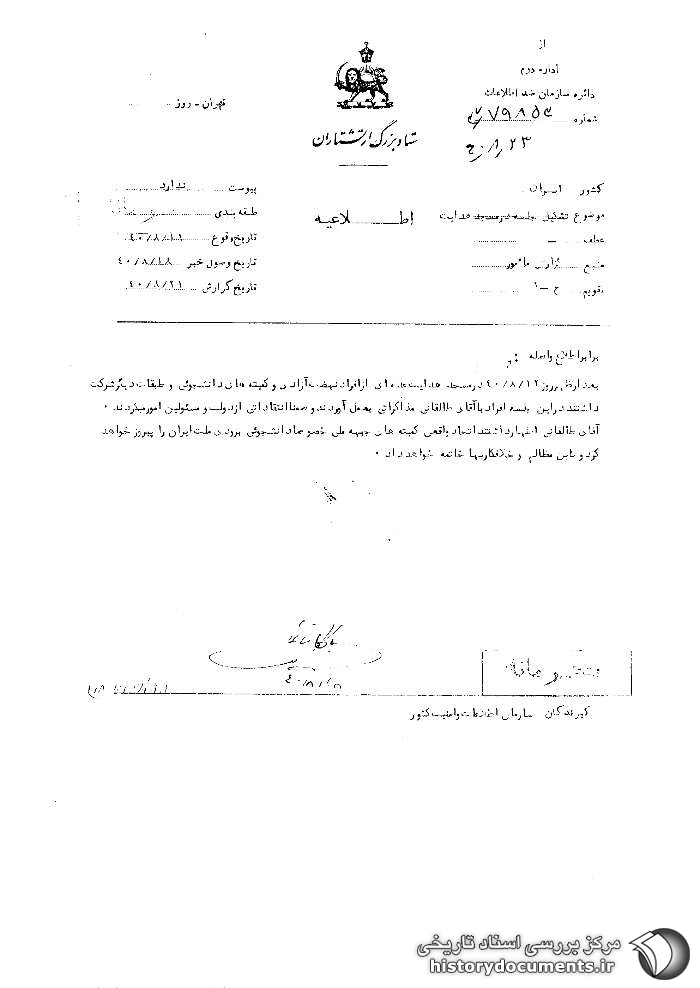 از
اداره دوم
دائره سازمان ضد اطلاعات
شماره
۴۰/۸/۲۳
ستاد بزرگ ارتشتاران
تهران - روز
کشور ایران
موضوع تشکیل جلسه در مسجد هدایت
عطف -
منبع گزارش مأمور
تقویم ج - ۱
اطلاعیه
پیوست ندارد
طبقه بندی
تاریخ وقوع
تاریخ وصول خبر ۴۰/۸/۱۸
تاریخ گزارش ۴۰/۸/۲۱
برابر اطلاع واصله :
بعد از ظهر روز ۴۰/۸/۱۲ در مسجد هدایت عده ای از افراد نهضت آزادی و کمیته های دانشجوئی و طبقات دیگر شرکت
داشتند در این جلسه افراد با آقای طالقانی مذاکراتی بعمل آوردند و ضمنا انتقاداتی از دولت و مسئولین امور میکردند .
آقای طالقانی اظهار داشتند اتحاد واقعی کمیته های جبهه ملی خصوصا دانشجوئی بزودی ملت ایران را پیروز خواهد
کرد و باین مظالم و خلافکاریها خاتمه خواهد داد .
محرمانه
گیرندگان سازمان اطلاعات و امنیت کشور
مرکز بررسی اسناد تاریخی
historydocuments.ir